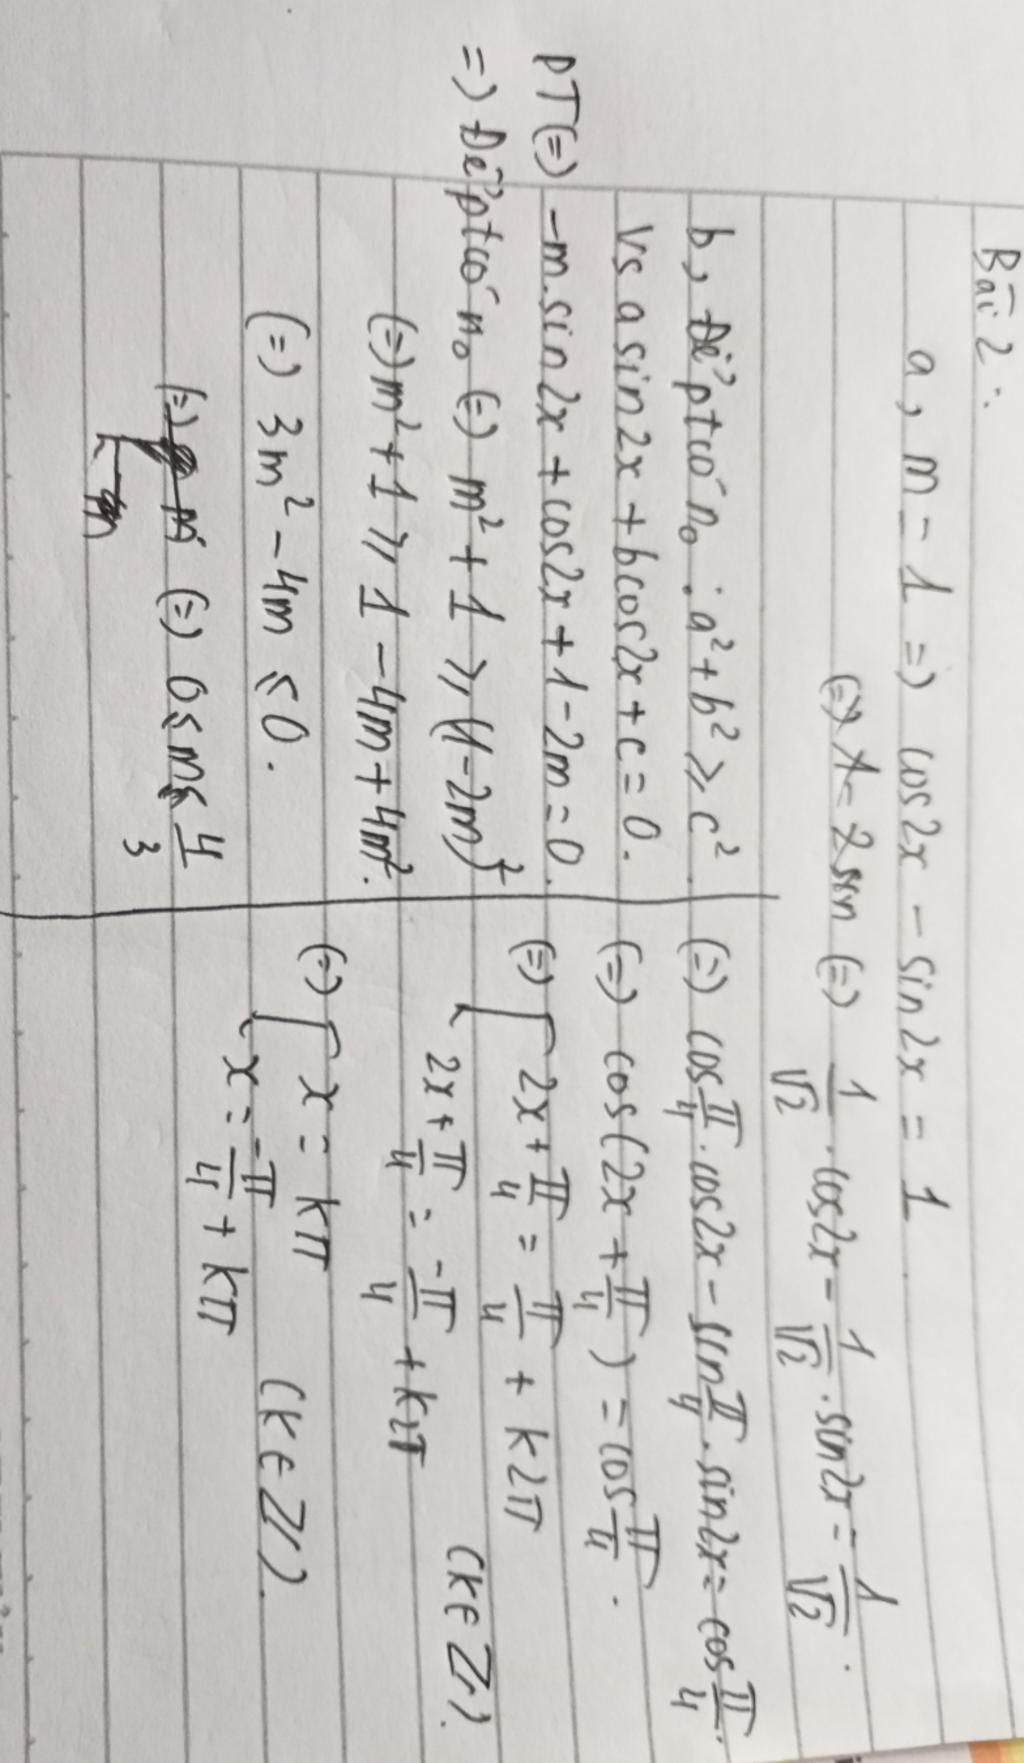 Bài 2:
a, m = 1 => cos2x - sin2x = 1.
(=) 1 - 2sin (=) 1/√2 . cos2x - 1/√2 . sin2x = 1/√2 .
(=) cos π/4 . cos2x - sin π/4 . sin2x = cos π/4 .
(=) cos(2x + π/4) = cos π/4 .
(=) [ 2x + π/4 = π/4 + k2π
2x + π/4 = -π/4 + k2π (k ∈ Z).
(=) [ x = kπ
x = -π/4 + kπ (k ∈ Z).
b, Để pt có n₀ : a² + b² ⩾ c².
Vs a sin2x + b cos2x + c = 0.
PT (=) -m.sin2x + cos2x + 1 - 2m = 0.
=> Để pt có n₀ (=) m² + 1 ⩾ (1 - 2m)²
(=) m² + 1 ⩾ 1 - 4m + 4m².
(=) 3m² - 4m ⩽ 0.
(=) (=) 0 ⩽ m ⩽ 4/3